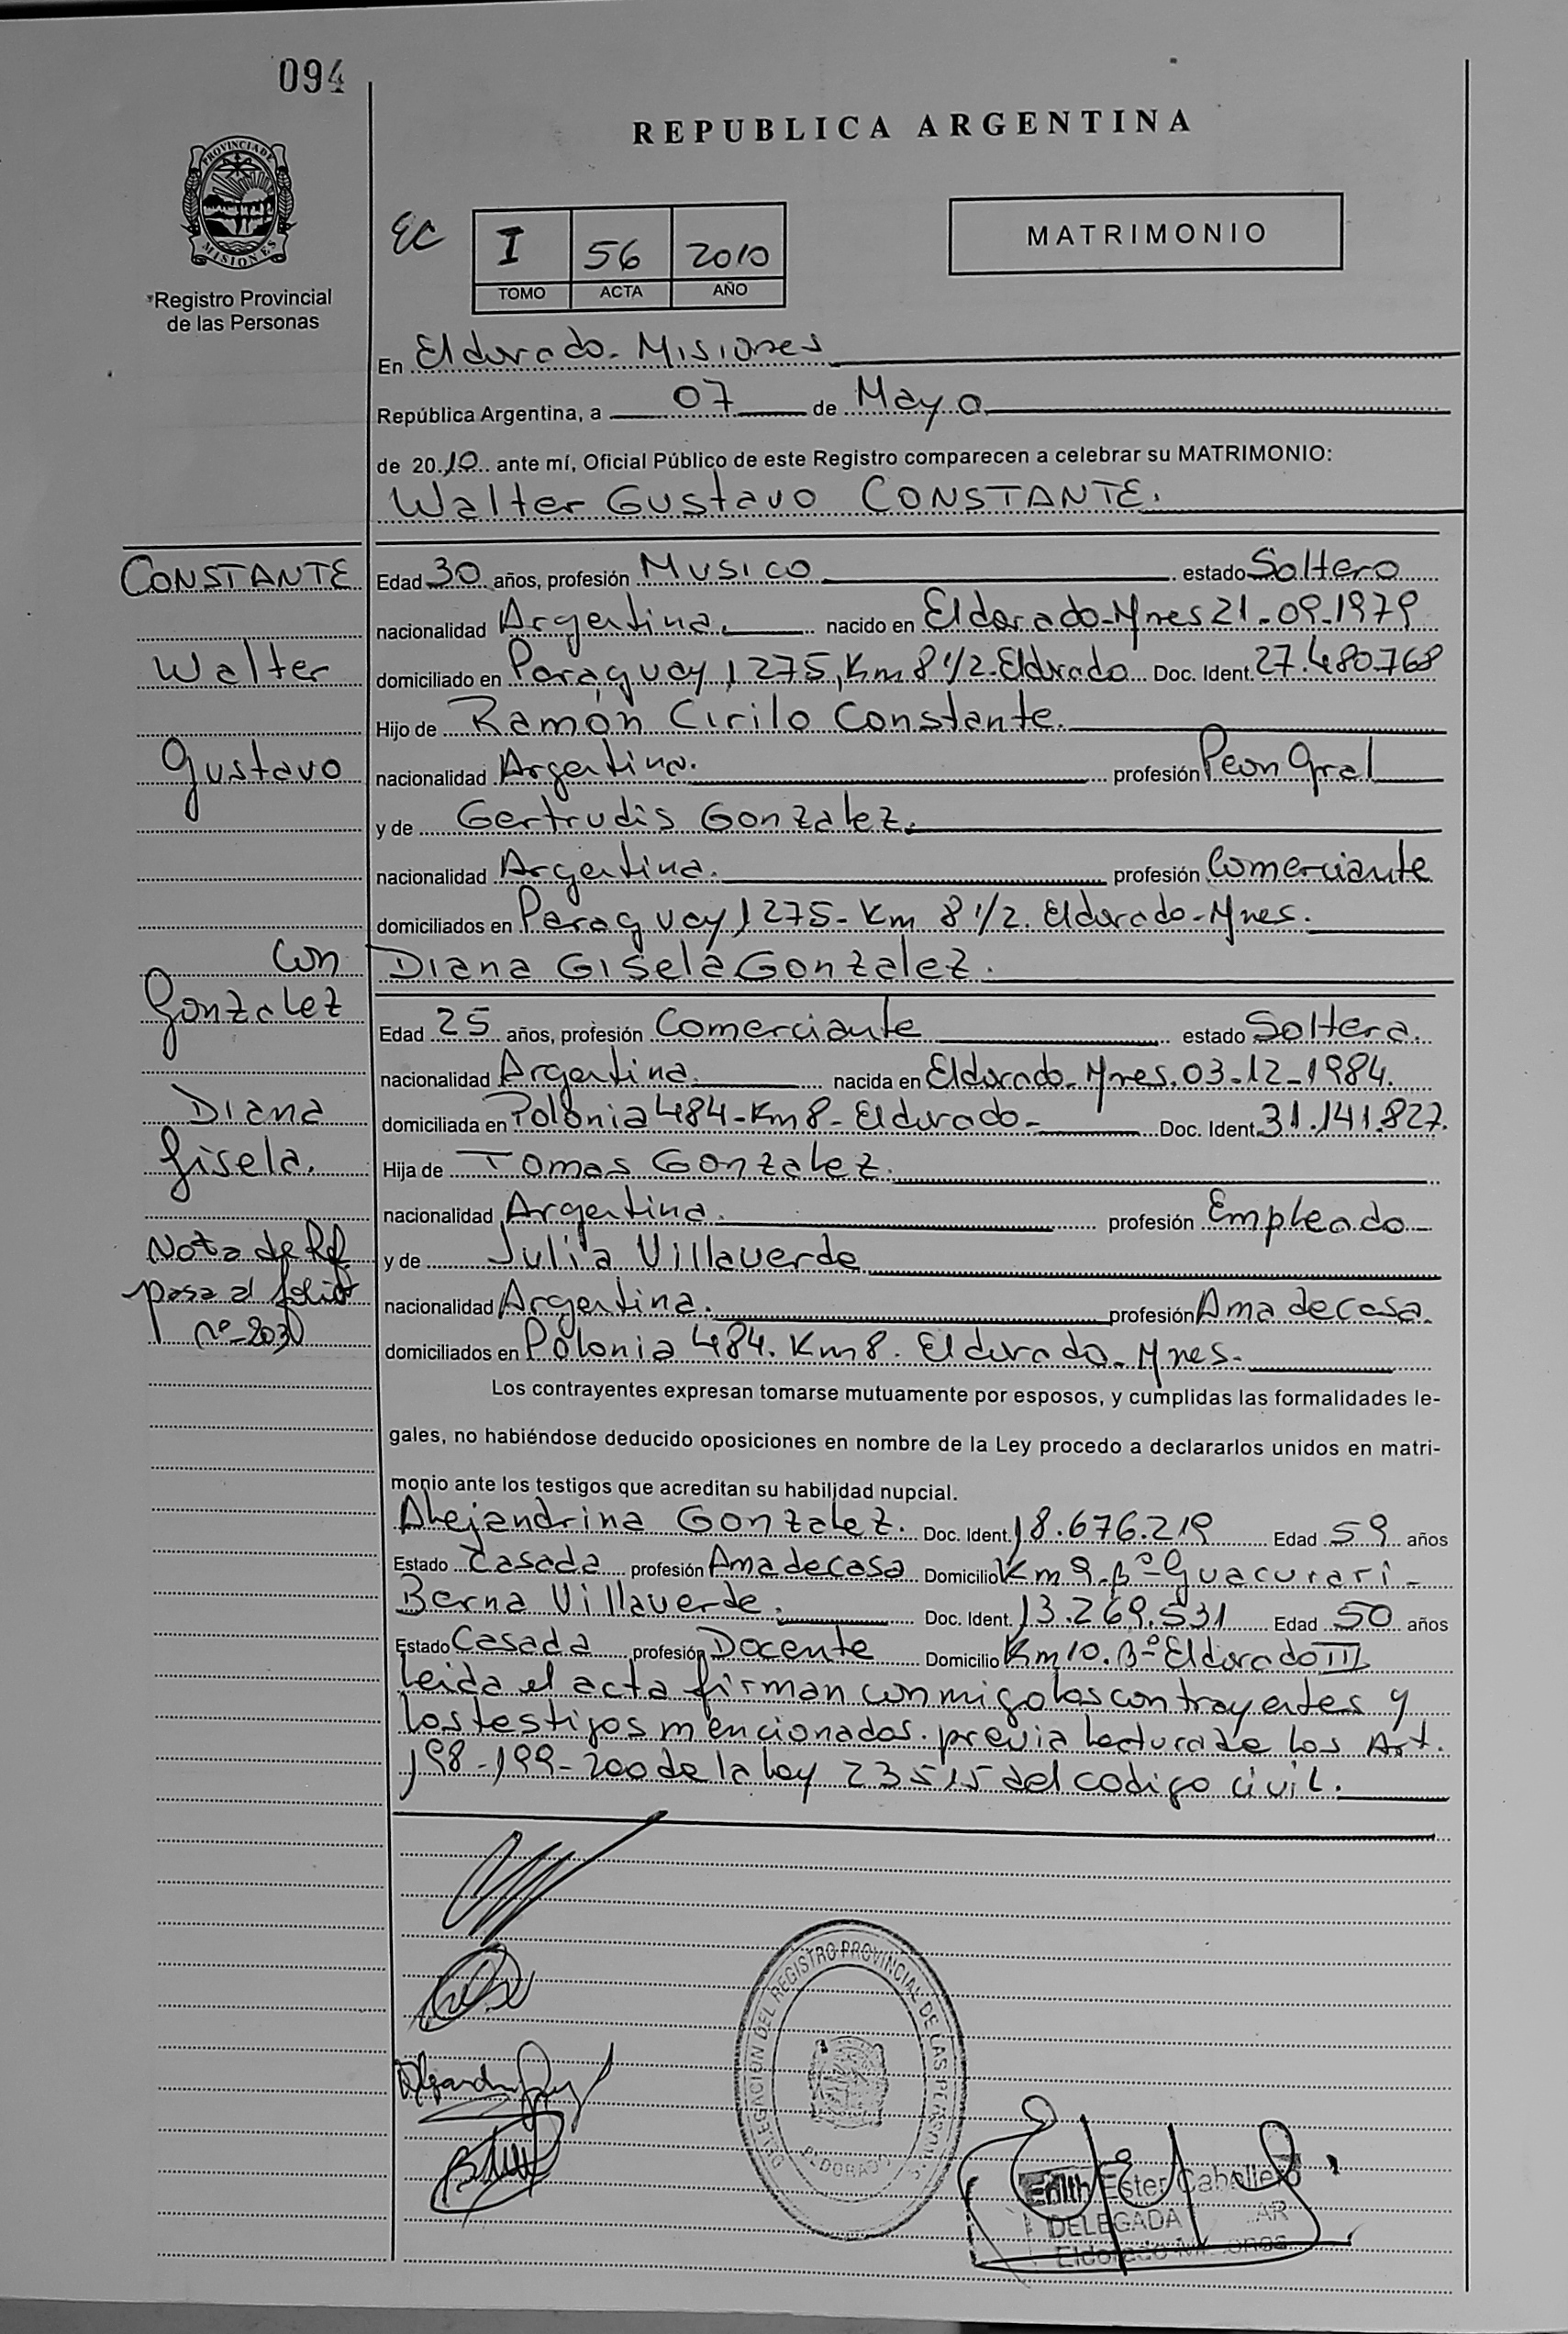 094
REPUBLICA ARGENTINA
PROVINCIA DE MISIONES
Registro Provincial
de las Personas
EC
I 56 2010
TOMO ACTA AÑO
MATRIMONIO
En Eldorado - Misiones
República Argentina, a 07 de Mayo
de 2010 ante mí, Oficial Público de este Registro comparecen a celebrar su MATRIMONIO:
Walter Gustavo CONSTANTE.
CONSTANTE
Edad 30 años, profesión Musico estado Soltero
nacionalidad Argentina. nacido en Eldorado-Mnes 21-09-1979
Walter
domiciliado en Paraguay 1275, Km 8 1/2-Eldorado Doc. Ident. 27.480.768
Hijo de Ramón Cirilo Constante.
Gustavo
nacionalidad Argentina. profesión Peon Gral
y de Gertrudis Gonzalez.
nacionalidad Argentina. profesión Comerciante
domiciliados en Paraguay 1275-Km 8 1/2. Eldorado-Mnes.
con
Diana Gisela Gonzalez.
Gonzalez
Edad 25 años, profesión Comerciante estado Soltera.
nacionalidad Argentina. nacida en Eldorado-Mnes. 03-12-1984.
Diana
domiciliada en Polonia 484-Km 8-Eldorado- Doc. Ident. 31.141.827.
Gisela.
Hija de Tomas Gonzalez.
nacionalidad Argentina. profesión Empleado
Nota de Ref
y de Julia Villaverde
pasa al folio
nacionalidad Argentina. profesión Ama de casa.
nº-203
domiciliados en Polonia 484. Km 8. Eldorado-Mnes-
Los contrayentes expresan tomarse mutuamente por esposos, y cumplidas las formalidades le-
gales, no habiéndose deducido oposiciones en nombre de la Ley procedo a declararlos unidos en matri-
monio ante los testigos que acreditan su habilidad nupcial.
Alejandrina Gonzalez. Doc. Ident. 18.676.219 Edad 59 años
Estado Casada profesión Ama de casa Domicilio Km 9-Bº-Guacurari-
Berna Villaverde. Doc. Ident. 13.269.531 Edad 50 años
Estado Casada profesión Docente Domicilio Km 10. Bº Eldorado III
Leida el acta firman conmigo los contrayentes y
los testigos mencionados. previa lectura de los Art.
198-199-200 de la ley 23515 del codigo civil.
DELEGACION DEL REGISTRO PROVINCIAL DE LAS PERSONAS
ELDORADO
Edith Ester Caballero
DELEGADA
Eldorado